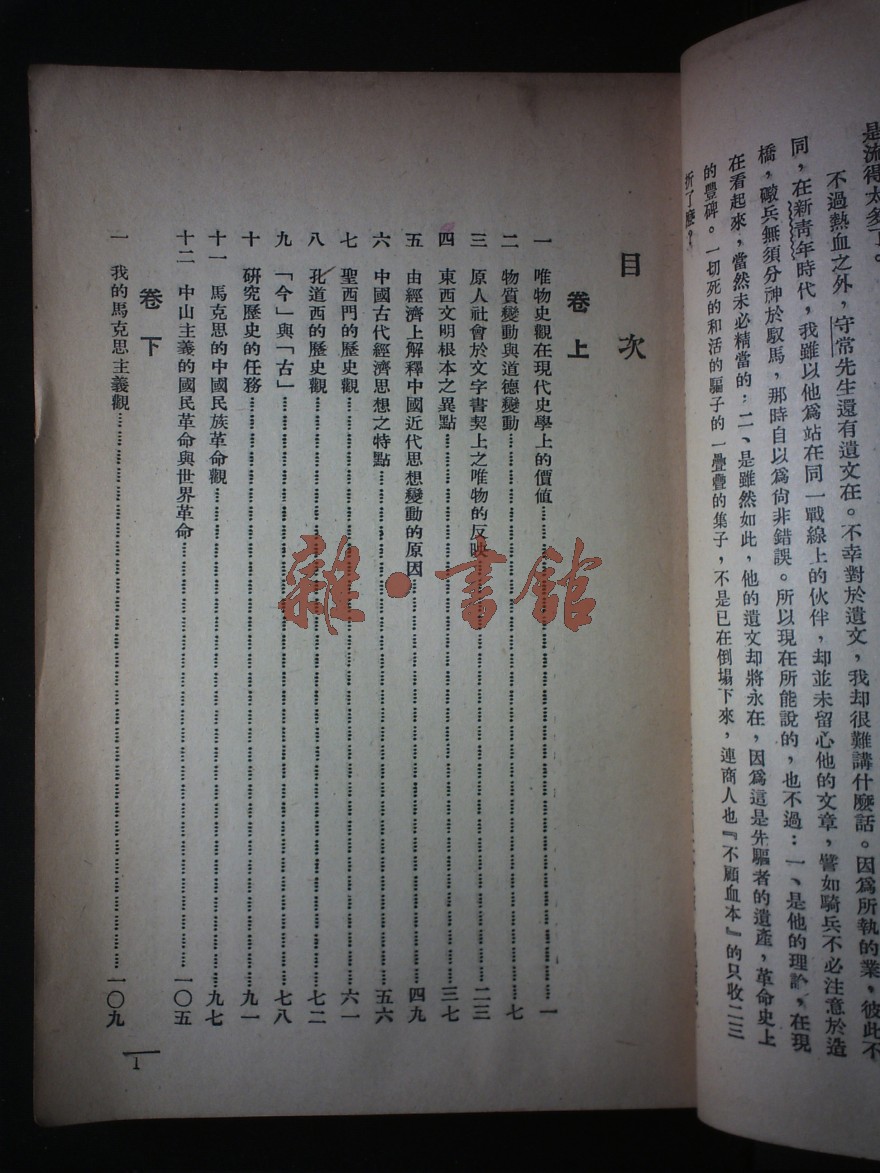 是流得太多了。
不過熱血之外，守常先生還有遺文在。不幸對於遺文，我却很難講什麼話。因爲所執的業，彼此不
同，在新靑年時代，我雖以他爲站在同一戰線上的伙伴，却並未留心他的文章，譬如騎兵不必注意於造
橋，礮兵無須分神於馭馬，那時自以爲尙非錯誤。所以現在所能說的，也不過：一、是他的理論，在現
在看起來，當然未必精當的；二、是雖然如此，他的遺文却將永在，因爲這是先驅者的遺產，革命史上
的豐碑。一切死的和活的騙子的一疊疊的集子，不是已在倒塌下來，連商人也『不顧血本』的只收二三
折了麼？
目次
卷上
一 唯物史觀在現代史學上的價値……一
二 物質變動與道德變動……七
三 原人社會於文字書契上之唯物的反映……二三
四 東西文明根本之異點……三七
五 由經濟上解釋中國近代思想變動的原因……四九
六 中國古代經濟思想之特點……五六
七 聖西門的歷史觀……六一
八 孔道西的歷史觀……七二
九 「今」與「古」……七八
十 研究歷史的任務……九一
十一 馬克思的中國民族革命觀……九七
十二 中山主義的國民革命與世界革命……一〇五
卷下
一 我的馬克思主義觀……一〇九
1
雜·書館